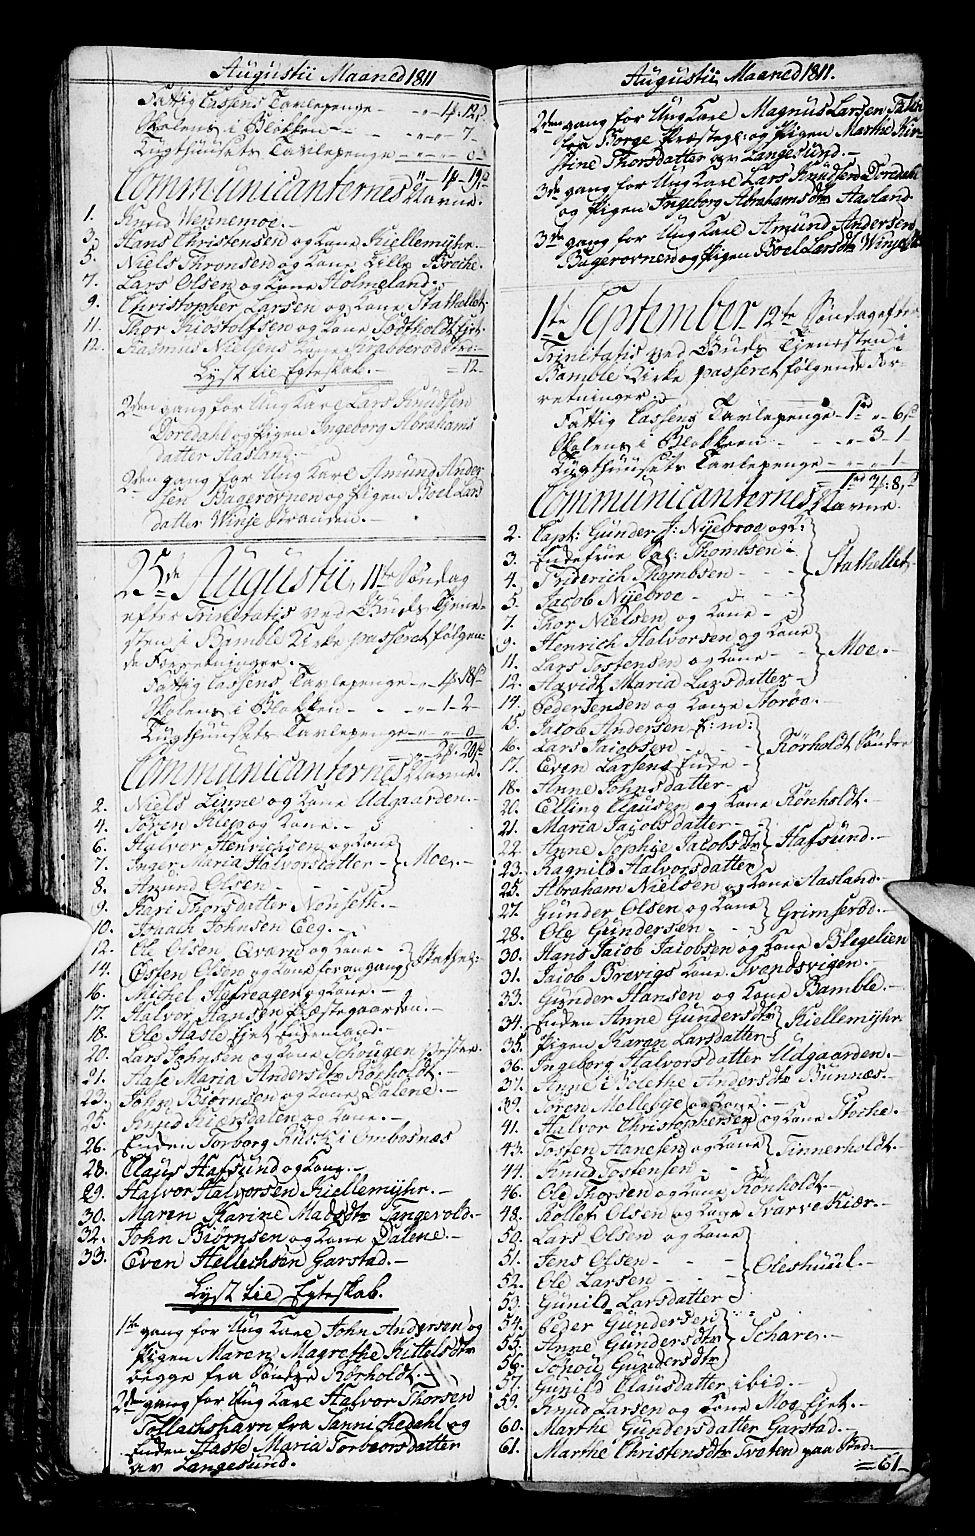 Augustii Maaned 1811
Fattig Cassens Tavlepenge - " " 4 . 12 s
Skolens i Blokken - - - " " 7 -
Tugthuusets Tavlepenge - " " 0
" 4 - 19 s
Communicanternes Navne.
1. Knud Wennemoe. -
3. Hans Christensen og Kone Kiellemyhr. -
5. Niels Thronsen og Kone Lille Broche.
7. Lars Olsen og Kone Holmeland. -
9. Christopher Larsen og Kone Stathellet.
11. Thor Kiostolfsen og Kone
12. Rasmus Nielsens Kone
= 12 -
Lyst til Egteskab. -
2den gang for Ung Karl Lars Knudsen
Doredahl og Pigen Ingeborg Abrahams
datter Aasland. -
2den gang for Ung Karl Amund Ander
sen Bagerovnen og Pigen Boel Lars
datter Winje Stranden. -
25de Augustii, 11te Søndag
efter Trinitatis ved Guds Tjene-
sten i Bamble Kirke passeret følgen-
de Forretninger.
Fattig Cassens Tavlepenge - " 4. 18 s
Skolens i Blokken - - - " 1 - 2 -
Tugthuusets Tavlepenge - " " 0
" 2 . 20 s
Communicanternes Navne.
2. Niels Linne og Kone Udgaarden. -
4. Søren Kiep og Kone. -
6. Halvor Henrichsen og Kone
7. Inger Maria Halvorsdatter - } Moe. -
8. Amund Olsen - - -
9. Kari Thorsdatter Nonseth. -
10. Isaach Johnsen Eeg. -
12. Ole Olsen Qvarn og Kone -
14. Østen Olsen og Kone
16. Michel Hafreager og Kone. -
17. Halvor Hansen Præstegaarden. -
18. Ole Hasle
20. Lars Johnsen og Kone Schougen
21. Aase Maria Andersdtr Rørholt. -
23. John Biørnsen og Kone Dalene. -
25. Knud Kiersdalen og Kone. -
26. Enken Torborg Ombosnæs
28. Claus Hafsund og Kone. -
29. Halvor Halvorsen Kiellemyhr. -
30. Maren Karine Madsdtr Langevold. -
32. John Biørnsen og Kone Dalene. -
33. Even Hellechsen Garstad. -
Lyst til Egteskab.
1te gang for Ung Karl John Andersen og
Pigen Maren Magrethe Kittelsdtr
begge fra Søndre Rørholdt. -
2den gang for Ung Karl Halvor Thorsen
Tollachshavn fra Sannichedahl og
Enken Aaste Maria Torbiørsdatter
av Langesund. -
Augustii Maaned 1811.
2den gang for Ung Karl Magnus Larsen
fra Borge Præstegl: og Pigen Marthe Kir-
stine Thorsdatter av Langesund. -
3de gang for Ung Karl Lars Knudsen Doredahl
og Pigen Ingeborg Abrahamsdtr Aasland.
3de gang for Ung Karl Amund Andersen
Bagerovnen og Pigen Boel Larsdtr
1te September 12te Søndag efter
Trinitatis ved Guds Tjenesten i
Bamble Kirke passeret følgende For-
retninger:
Fattig Cassens Tavlepenge - 1 " 6 s
Skolens i Blokken - - - " 3 - 1
Tugthuusets Tavlepenge - " " 1
1 4 : 8 s
Communicanternes Navne
2. Capt: Gunder J: Nyebroe og K:
3. Thomesen
4. Friderich Thomesen - - - } Stathellet.
5. Jacob Nyebroe - - -
7. Thor Nielsen og Kone -
9. Henrich Halvorsen og Kone
11. Lars Tostensen og Kone - } Moe. -
12. Havidt Maria Larsdatter -
14. Peder Jensen og Kone Storøe. -
15. Jacob Andersen
16. Lars Jacobsen - - - } Rørholdt Søndre
17. Even Larsens Enke -
18. Anne Johnsdatter -
20. Elling Clausen og Kone Rønholdt. -
21. Maria Jacobsdatter -
22. Anne Sophie Jacobsdtr } Hafsund. -
23. Ragnild Halvorsdatter
25. Abraham Nielsen og Kone Aasland. -
27. Gunder Olsen og Kone } Grimserød. -
28. Ole Gundersen - -
30. Hans Jacob Jacobsen og Kone Blegelien
31. Jacob Brevigs Kone Trendsvigen. -
33. Gunder Hansen og Kone Bamble. -
34. Enken Anne Gundersdtr } Kiellemyhr
35. Pigen Karen Larsdatter
36. Ingeborg Halvorsdatter Udgaarden. -
37. Anne Andersdtr Bunnæs. -
39. Søren Mellebye og Kone. -
41. Halvor Christophersen og Kone Troche.
43. Tosten Hansen og Kone } Tinnerholdt. -
44. Knud Tostensen - -
46. Ole Thorsen og Kone Rønholdt. -
48. Rollef Olsen og Kone Svarve Kiær. -
50. Lars Olsen og Kone
51. Jens Olsen - - - } Oleshuul. -
52. Ole Larsen - -
53. Gunild Larsdatter
54. Peder Gundersen
55. Anne Gundersdtr } Schare. -
56. Gundersdtr
57. Gunild Clausdatter ibid. -
59. Knud Larsen og Kone Moe
60. Marthe Gundersdatter Garstad. -
61. Marthe Christensdtr Tvoten paa Stad -
= 61 -